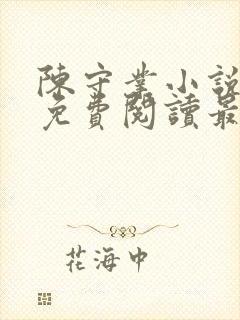 陳守業小說
免費閱讀最
花海中